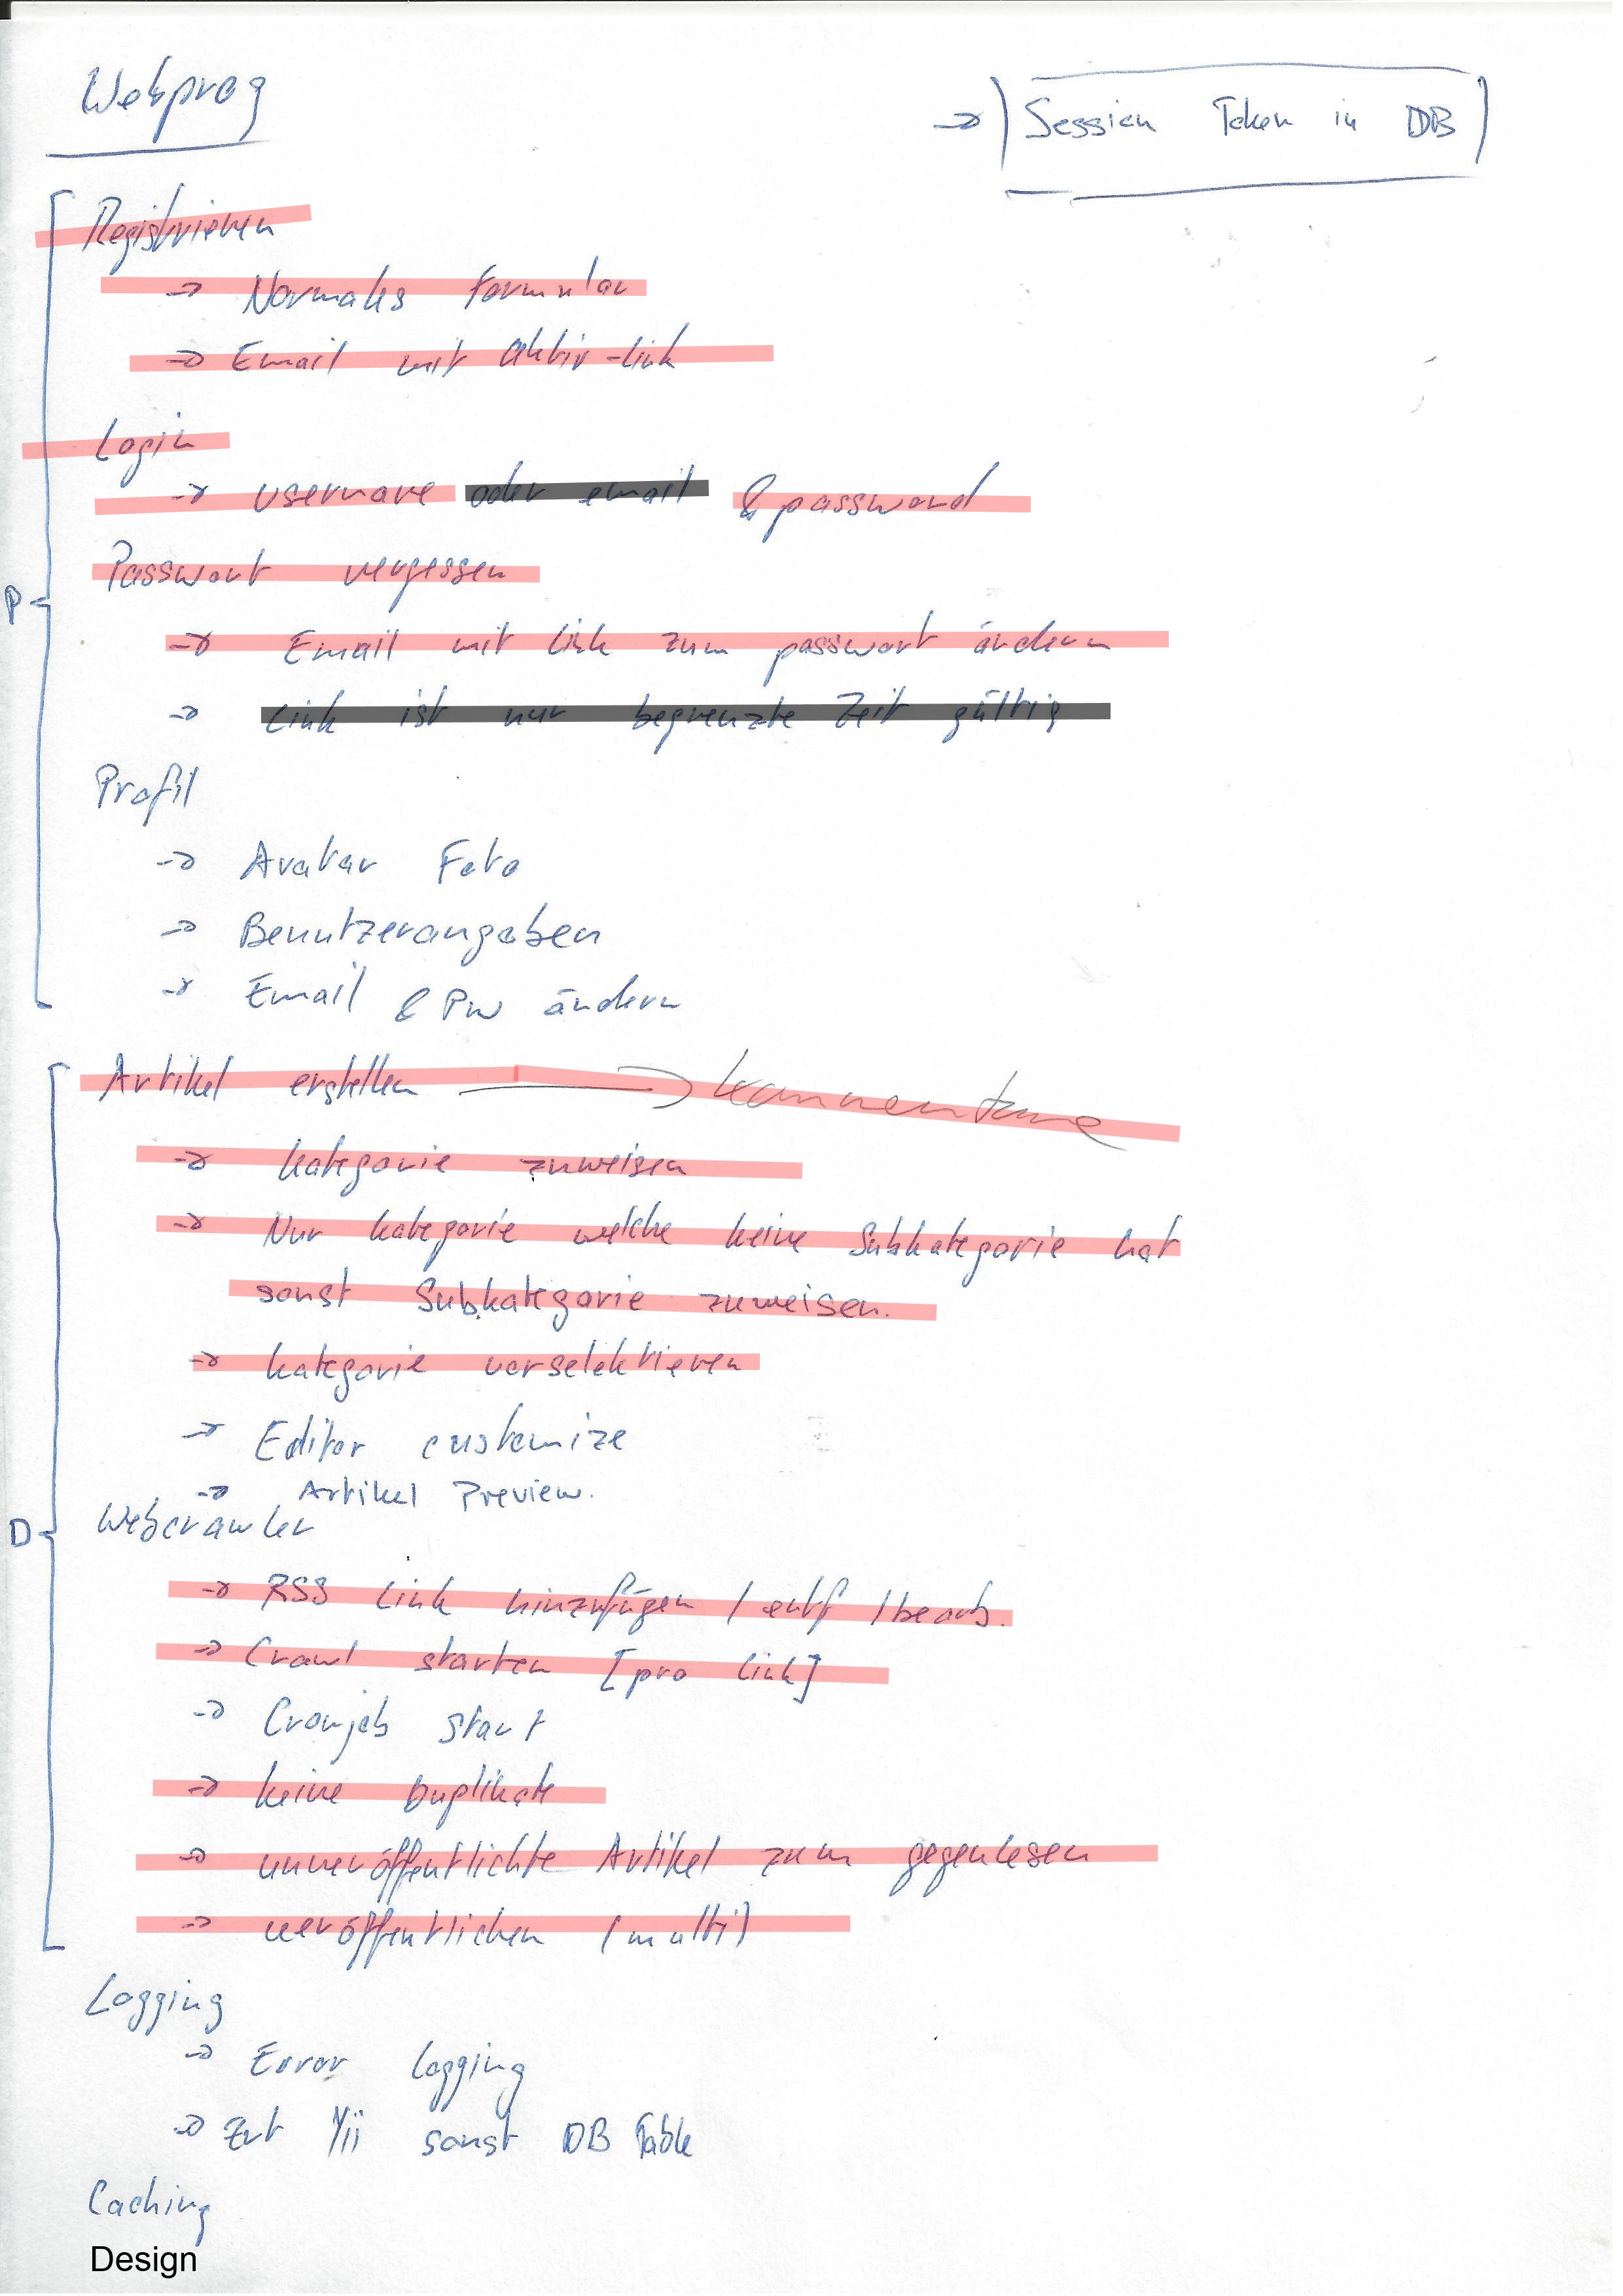 Webprog
→ Session Token in DB
Registrieren
→ Normales Formular
→ Email mit Aktiv-Link
Login
→ username oder email & password
Passwort vergessen
P
→ Email mit Link zum passwort ändern
→ Link ist nur begrenzte Zeit gültig
Profil
→ Avatar Foto
→ Benutzerangaben
→ Email & PW ändern
Artikel erstellen → Kommentare
→ Kategorie zuweisen
→ Nur Kategorie welche keine Subkategorie hat
sonst Subkategorie zuweisen.
→ Kategorie vorselektieren
→ Editor customize
→ Artikel Preview.
Webcrawler
D
→ RSS Link hinzufügen / entf / bearb.
→ Crawl starten [pro Link]
→ Cronjob start
→ keine Duplikate
→ unveröffentlichte Artikel zum gegenlesen
→ veröffentlichen (multi)
Logging
→ Error Logging
→ Yii sonst DB Table
Caching
Design